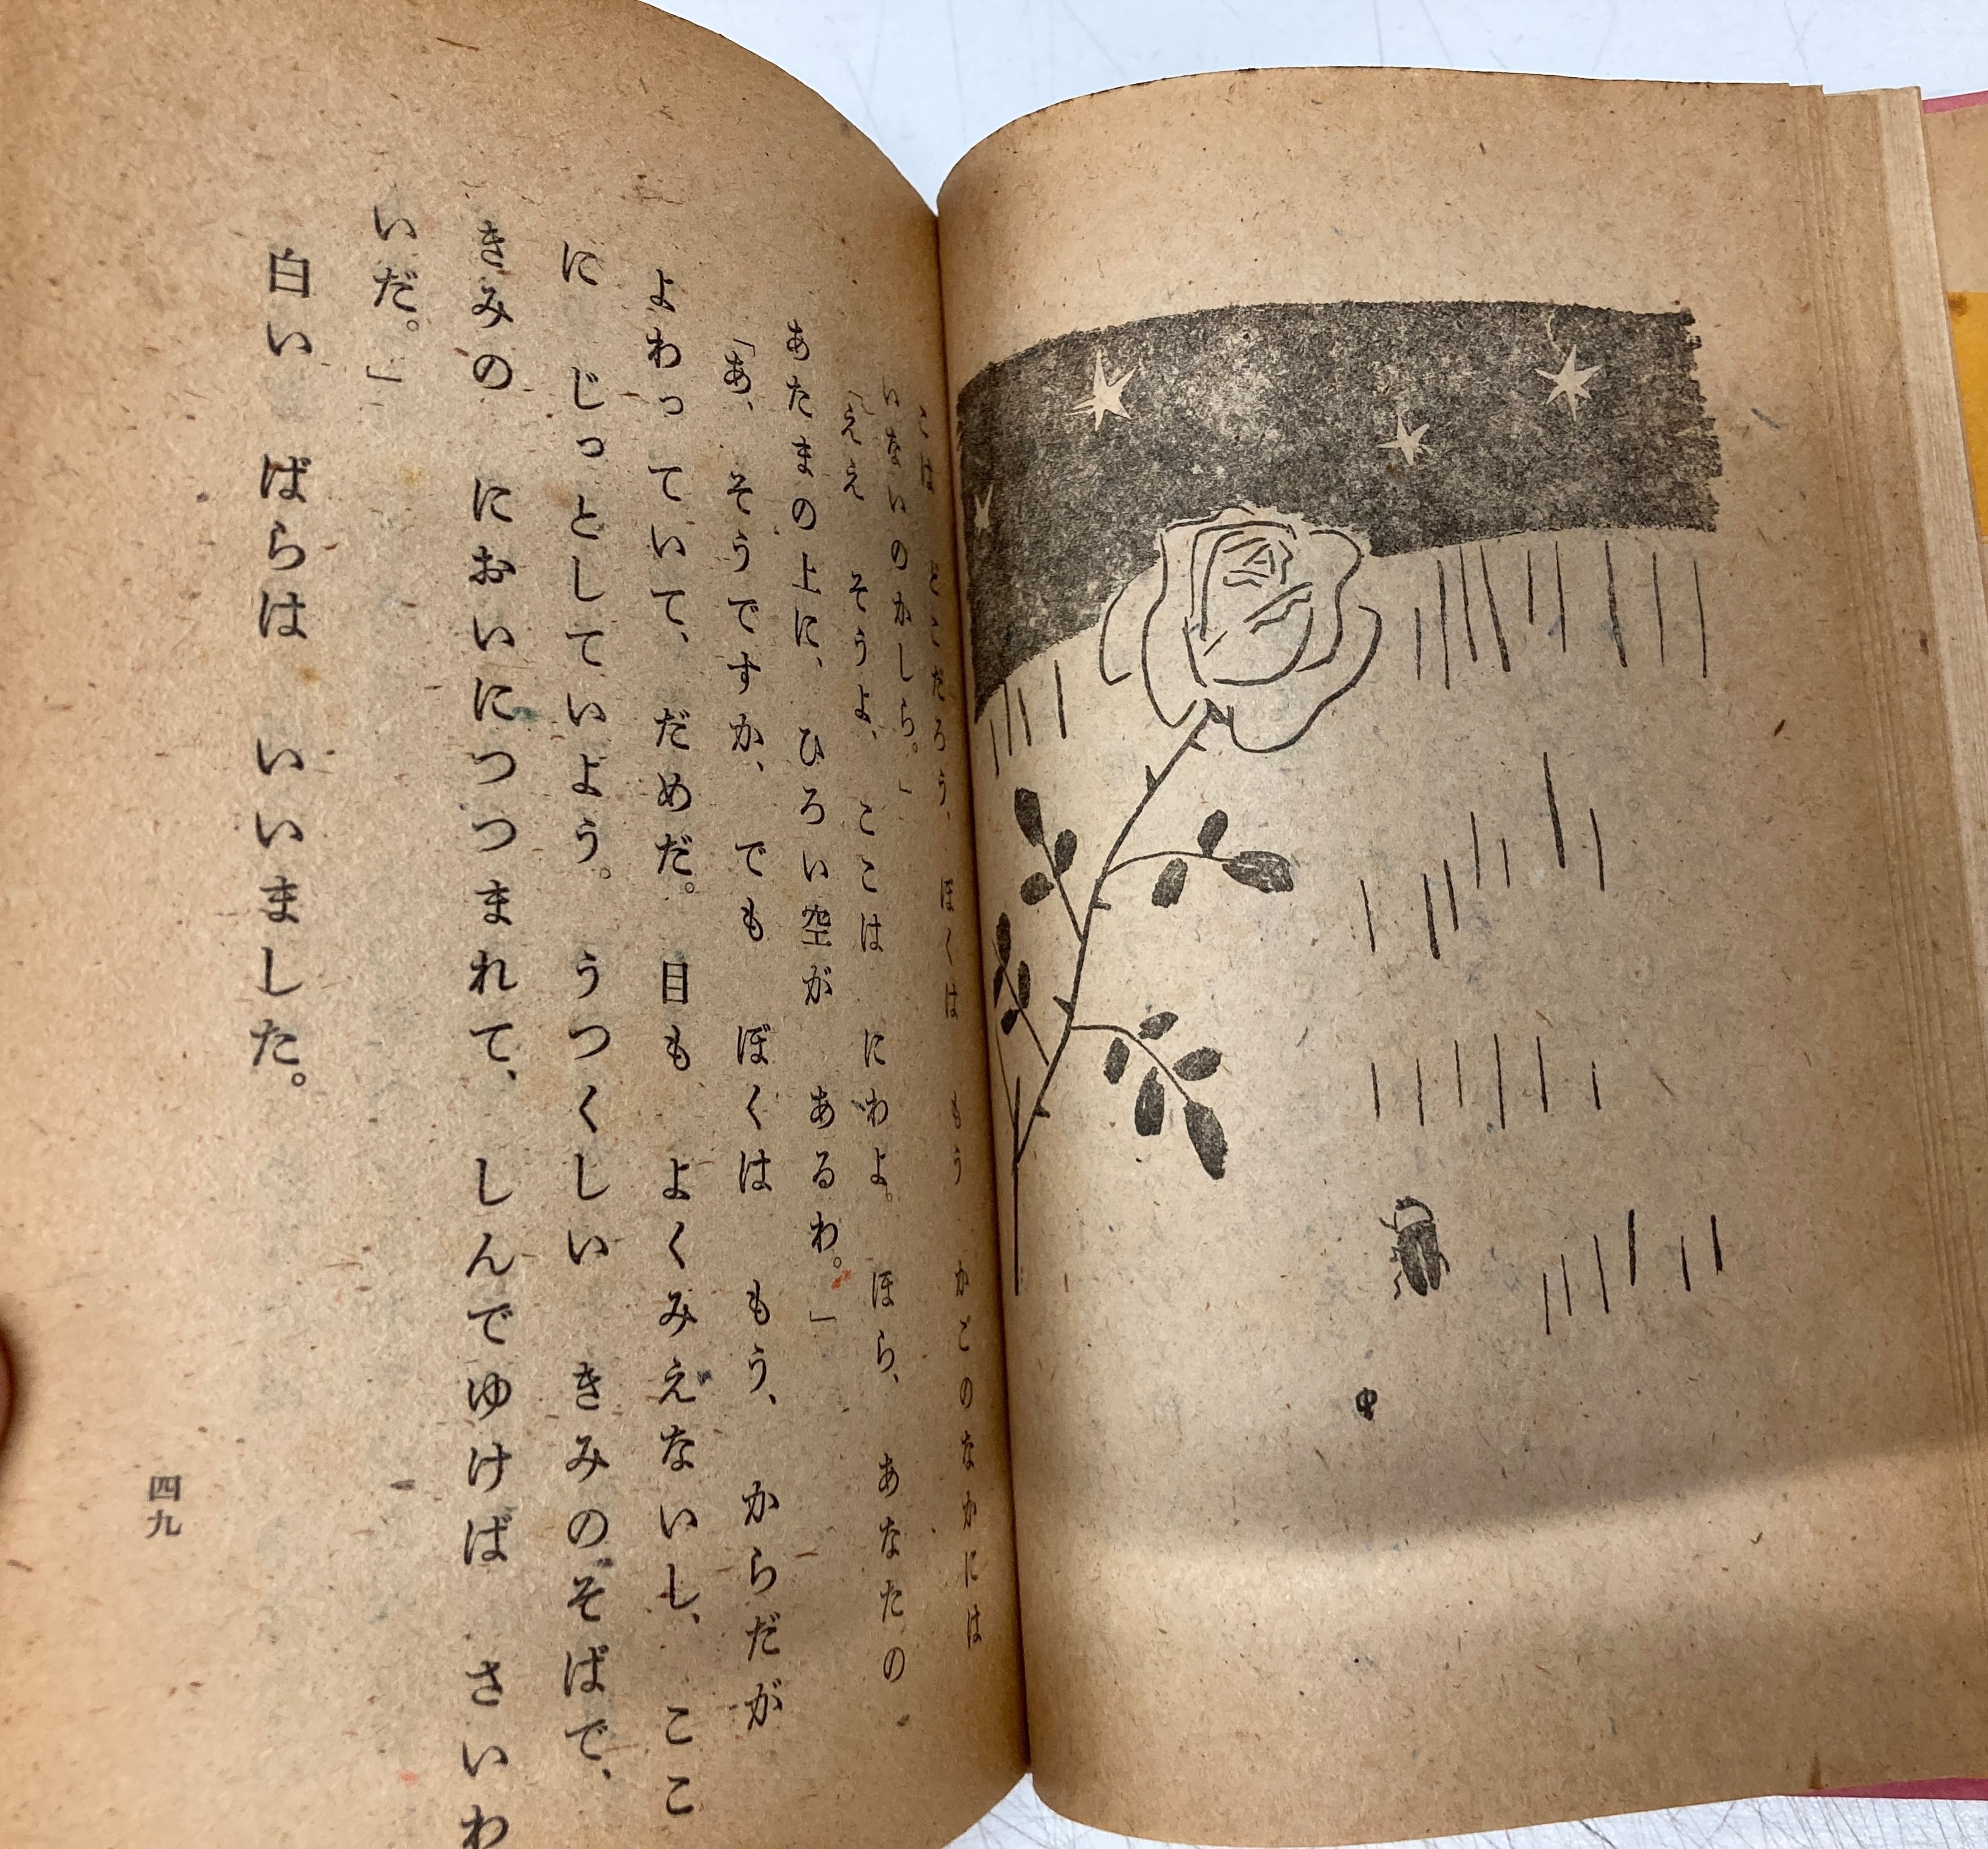 こは どこだろう、 ぼくは もう かごのなかには
いないのかしら。」
「ええ そうよ、 ここは にわよ。 ほら、 あなたの
あたまの上に、 ひろい空が あるわ。」
「あ、 そうですか、 でも ぼくは もう、 からだが
よわっていて、 だめだ。 目も よくみえないし、 ここ
に じっとしていよう。 うつくしい きみのそばで、
きみの においにつつまれて、 しんでゆけば さいわ
いだ。」
白い ばらは いいました。
四九